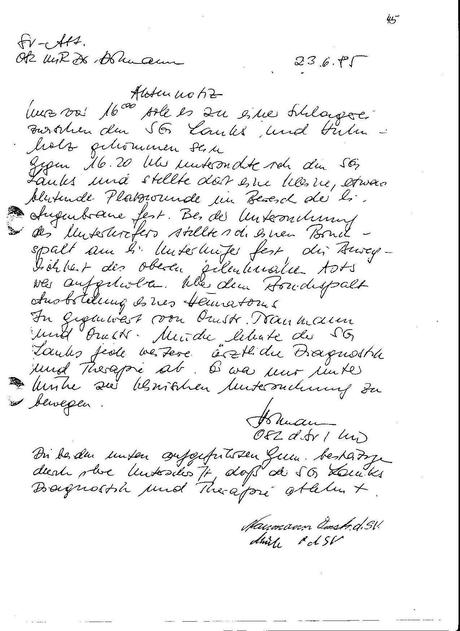 45
SV-Abt.
OSL MR Dr. Hofmann
23.6.85
Aktennotiz
Kurz vor 16⁰⁰ solle es zu einer Schlägerei
zwischen den SG Lanks und
holz gekommen sein
Gegen 16.20 Uhr untersuchte ich den SG
Lanks und stellte dort eine kleine, etwas
blutende Platzwunde im Bereich der li.
Augenbraue fest. Bei der Untersuchung
des Unterkiefers stellte ich einen Bruch-
spalt am li Unterkiefer fest die Beweg-
lichkeit des oberen gelenknahen Asts
war aufgehoben. Über dem Bruchspalt
Ausbildung eines Hämatoms
In Gegenwart von Omstr.
und Omstr. lehnte der SG
Lanks jede weitere ärztliche Diagnostik
und Therapie ab. Er war nur unter
Mühe zur klinischen Untersuchung zu
bewegen.
Hofmann
OSL d. SV
Die beiden unten aufgeführten Gen. bestätigen
durch ihre Unterschrift, daß der SG Lanks
Diagnostik und Therapie ablehnt.
Omstr. d. SV
d SV